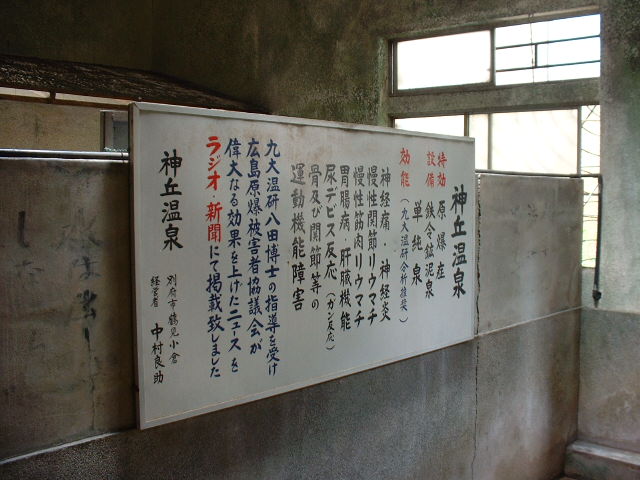 神丘温泉
特効 原爆症
設備 鉄令鉱泥泉
単純泉
効能（九大温研分析推奨）
神経痛・神経炎
慢性関節リウマチ
慢性筋肉リウマチ
胃腸病・肝臓機能
尿デビス反応（ガン反応）
骨及び関節等の
運動機能障害
九大温研八田博士の指導を受け
広島原爆被害者協議会が
偉大なる効果を上げたニュースを
ラジオ・新聞にて掲載致しました
神丘温泉
別府市鶴見小倉
経営者 中村良助